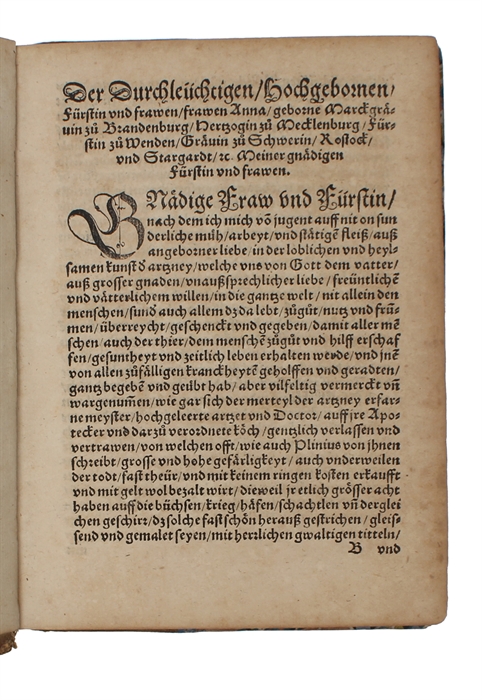 Der Durchleüchtigen/Hochgebornen/
Fürstin vnd frawen/frawen Anna/geborne Marckgrä-
uin zů Brandenburg/Hertzogin zů Mecklenburg/Für-
stin zů Wenden/Gräuin zů Schwerin/Rostock/
vnd Stargardt/ꝛc. Meiner gnädigen
Fürstin vnd frawen.
GNädige Fraw vnd Fürstin/
nach dem ich mich võ jugent auff nit on sun
derliche müh/arbeyt/vnd stätigẽ fleiß/auß
angeborner liebe/in der loblichen vnd heyl-
samen kunst ď artzney/welche vns von Gott dem vatter/
auß grosser gnaden/vnaußsprechlicher liebe/freüntlichẽ
vnd vätterlichem willen/in die gantze welt/nit allein den
menschen/sund̕ auch allem dz da lebt/zůgůt/nutz vnd frü-
men/überreycht/geschenckt vnd gegeben/damit aller mẽ
schen/auch der thier/dem menschẽ zůgůt vnd hilff erschaf
fen/gesuntheyt vnd zeitlich leben erhalten werde/vnd jnẽ
von allen zůfälligen kranckheytẽ geholffen vnd geradten/
gantz begeben vnd geübt hab/aber vilfeltig vermerckt vñ
wargenum̃en/wie gar sich der merteyl der artzney erfar-
ne meyster/hochgeleerte artzet vnd Doctor/auff jre Apo-
tecker vnd darzů verordnete köch/gentzlich verlassen vnd
vertrawen/von welchen offt/wie auch Plinius von jhnen
schreibt/grosse vnd hohe gefärligkeyt/auch vnderweilen
der todt/fast theür/vnd mit keinem ringen kosten erkaufft
vnd mit gelt wol bezalt wirt/dieweil jr etlich grösser acht
haben auff die büchsen/krieg/häfen/schachtlen vñ derglei
chen geschirr/dz solche fast schön herauß gestrichen/gleis-
send vnd gemalet seyen/mit herrlichen gwaltigen titteln/
B vnd